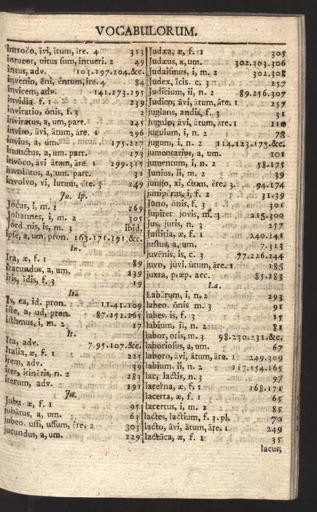 VOCABULORUM.
introëo, ivi, itum, ire. 4 313
intueor, uitus sum, intueri. 2 49
intus, adv. 103.197.204.&c.
invenio, êni, êntum, ire. 4 84
invicem, adv. 141.273.195
invidia. f. 1 239
invitatio, ônis, f. 3 2
invitatus, a, um. part. 245
invito, âvi, âtum, âre. 1 296
invius, a, um. 175.227
inunctus, a, um. part. 273
invoco, âvi âtum, âre. 1 299.315
involutus, a, um. part. 31
involvo, vi, lutum, ĕre. 3 249
Jo. Ip.
Jocus, i, m. 2 269
Johannes, i, m. 2 305
Jordanis, is, m. 3 ibid.
ipse, a, um, pron. 163.171.191.&c.
Ir.
Ira, æ, f. 1 89
iracundus, a, um. 239
Iris, idis, f. 3 19
Is.
Is, ea, id. pron. 11.41.109
iste, a, ud, pron. 87.252.265
isthmus, i, m. 2 17
It.
Ita, adv. 7.95.107.&c.
Italia, æ, f. 1 221
item, adv. 39
iter, itinĕris, n. 3 283
iterum, adv. 191
Ju.
Juba. æ, f. 1 95
jubatus, a, um. 63
jubeo. ussi, ussum, ĕre. 2 303
jucundus, a, um. 229
Judæa, æ, f. 1 305
Judæus, a, um. 302.303.306
Judaismus, i, m. 2 302.308
judex, icis. c. 3 257
Judicium, ii, n. 2 89.256.307
Judico, âvi, âtum, âre. 1 257
juglans, andis, f. 3 31
jugulo, âvi, âtum, âre. 1 110
jugulum, i, n. 2 78
jugum, i, n. 2 114.123.175.&c.
jumentarius, a, um. 101
jumentum, i, n. 2 58.175
Junius, ii, m. 2 39
jungo, xi, ctum, ĕre. 3 94.174
junipĕrus, i, f. 2 31.39
Juno, ônis, f. 3 301
Jupiter jovis, m. 3 215.300
Jus, juris, n. 3 257
Justitia, æ, f. 1 240.241
justus, a, um. 7.313
juvĕnis, is, c. 3 77.226.244
juvo, juvi, ûtum, âre. 1 185
juxta, præp. acc. 85.183
La.
Labarum, i, n. 2 293
labeo, ônis, m. 3 91
labes, is, f. 3 15
labium, ii, n. 2 81
labor, oris, m. 3 98.230.231.&c.
laboriosus, a, um. 67
laboro, âvi, âtum, âre. 1 249.309
labrum, ii, n. 2 117.154.165
lac, lactis, n. 3 97
lacerna, æ, f. 1 168.171
lacerta, æ, f. 1 65
lacertus, i, m. 2 85
lactes, lactium, f. 3. pl. 70
lacto, âvi, âtum, âre. 1 249
lactuca, æ, f. 1 35
lacus,